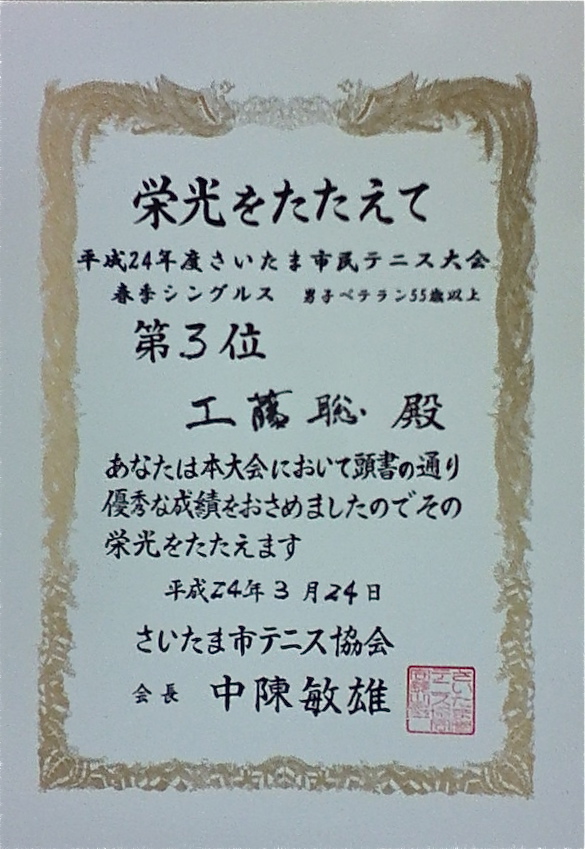 栄光をたたえて
平成24年度さいたま市民テニス大会
春季シングルス 男子ベテラン55歳以上
第3位
工藤聡 殿
あなたは本大会において頭書の通り
優秀な成績をおさめましたのでその
栄光をたたえます
平成24年3月24日
さいたま市テニス協会
会長 中陳敏雄